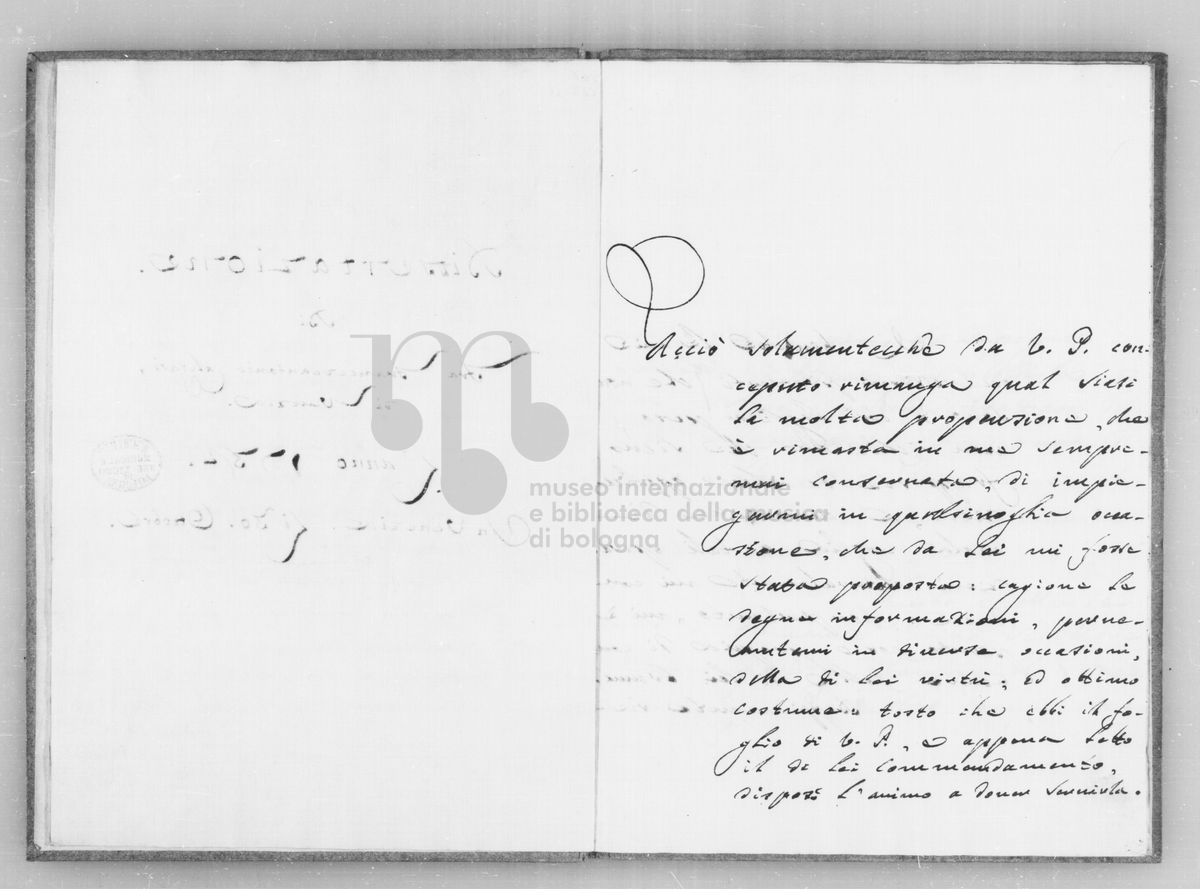 museo internazionale
e biblioteca della musica
di bologna
Acciò solamentecchè da V. P. con-
ceputo rimanga qual siasi
la molta propensione, che
è rimasta in me sempre-
mai conservata, di impie-
garmi in qualsivoglia occa-
sione, che da Lei mi fosse
stata proposta: cagione le
degne informazioni, perve-
nutemi in diverse occasioni,
della di Lei virtù, ed ottimo
costume: tosto che ebbi il fo-
glio di V. P., e appena letto
il di lei commandamento,
disposi l'animo a dover servirla.